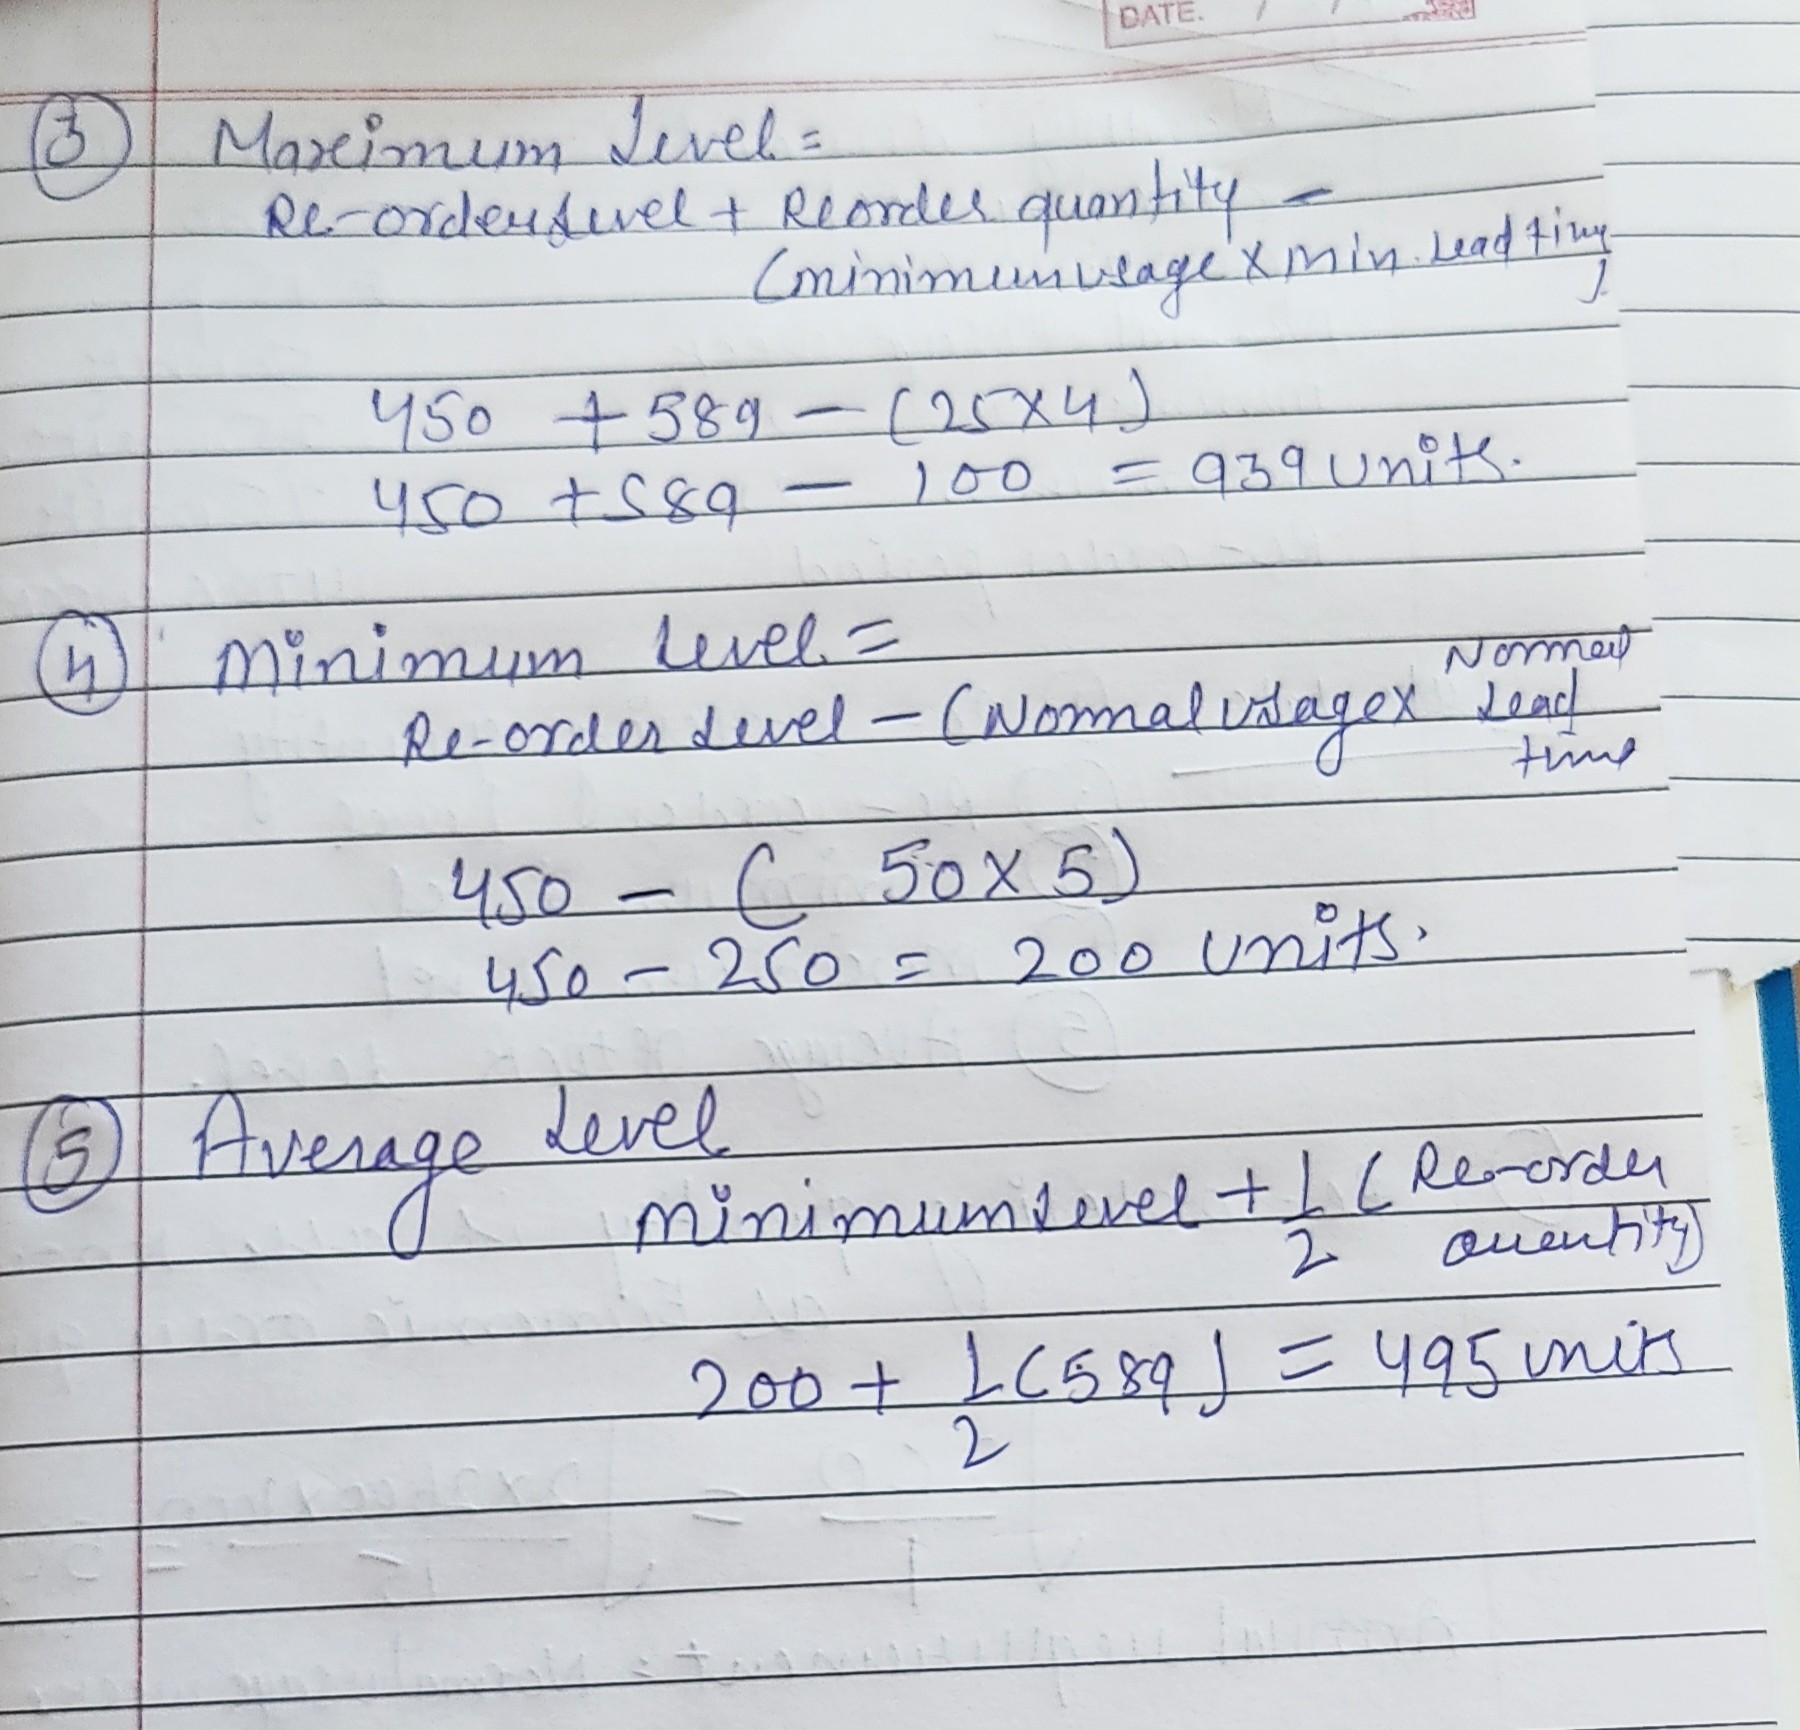 DATE. / /
3 Maximum Level =
Re-order Level + Reorder quantity -
(minimum usage x min. Lead time)
450 + 589 - (25x4)
450 + 589 - 100 = 939 units.
4 Minimum Level =
Re-order Level - (Normal usage x Normal Lead time
450 - ( 50 x 5)
450 - 250 = 200 units.
5 Average Level
minimum Level + 1/2 (Re-order quantity)
200 + 1/2 (589) = 495 units